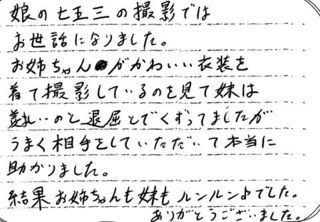 娘の七五三の撮影では
お世話になりました。
お姉ちゃんがかわいい衣装を
着て撮影しているのを見て妹は
羨しいのと退屈とでぐずってましたが
うまく相手をしていただいて本当に
助かりました。
結果お姉ちゃんも妹もルンルンでした。
ありがとうございました。